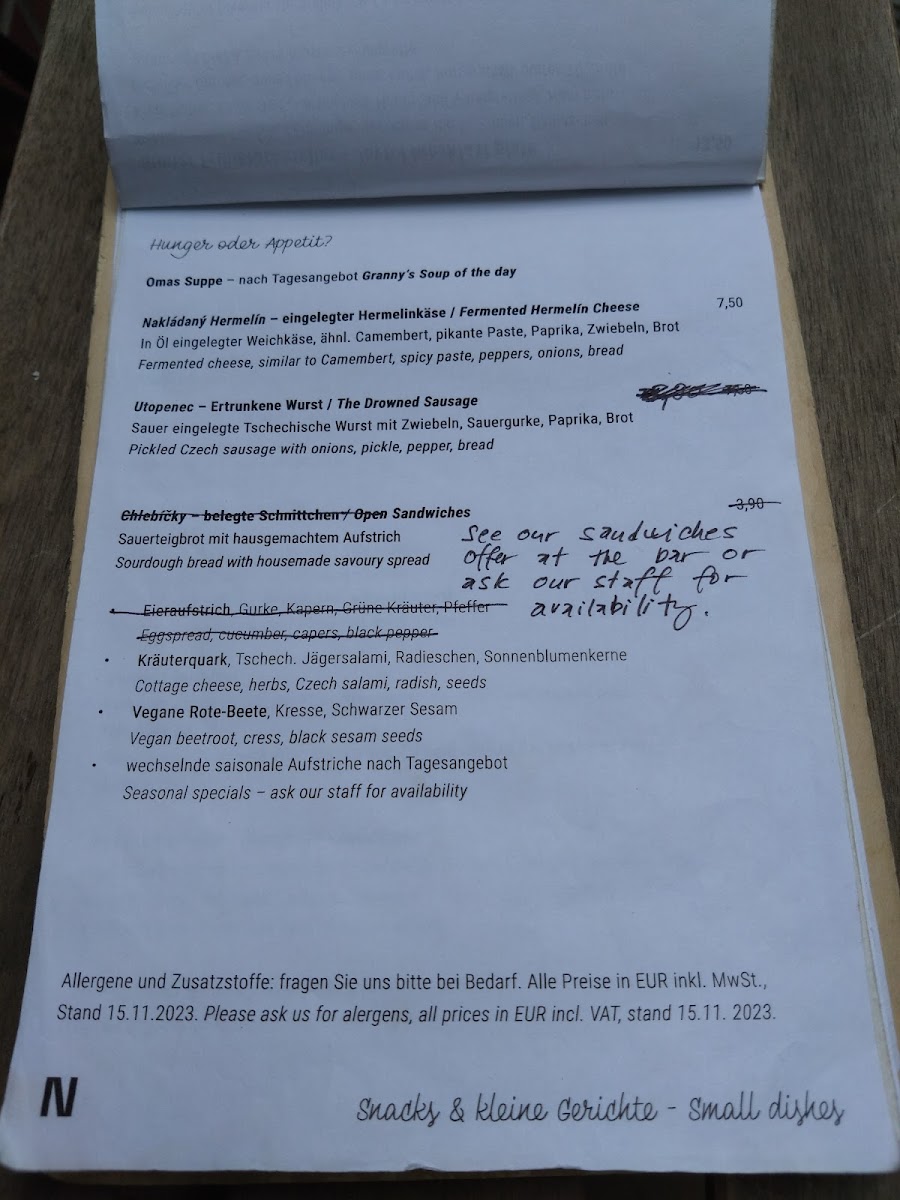 Hunger oder Appetit?
Omas Suppe – nach Tagesangebot Granny's Soup of the day
Nakládaný Hermelín – eingelegter Hermelinkäse / Fermented Hermelín Cheese 7,50
In Öl eingelegter Weichkäse, ähnl. Camembert, pikante Paste, Paprika, Zwiebeln, Brot
Fermented cheese, similar to Camembert, spicy paste, peppers, onions, bread
Utopenec – Ertrunkene Wurst / The Drowned Sausage
Sauer eingelegte Tschechische Wurst mit Zwiebeln, Sauergurke, Paprika, Brot
Pickled Czech sausage with onions, pickle, pepper, bread
Chlebíčky – belegte Schnittchen / Open Sandwiches 3,90
Sauerteigbrot mit hausgemachtem Aufstrich
Sourdough bread with housemade savoury spread
See our sandwiches
offer at the bar or
ask our staff for
availability.
Eieraufstrich, Gurke, Kapern, Grüne Kräuter, Pfeffer
Eggspread, cucumber, capers, black pepper
• Kräuterquark, Tschech. Jägersalami, Radieschen, Sonnenblumenkerne
Cottage cheese, herbs, Czech salami, radish, seeds
• Vegane Rote-Beete, Kresse, Schwarzer Sesam
Vegan beetroot, cress, black sesam seeds
• wechselnde saisonale Aufstriche nach Tagesangebot
Seasonal specials – ask our staff for availability
Allergene und Zusatzstoffe: fragen Sie uns bitte bei Bedarf. Alle Preise in EUR inkl. MwSt.,
Stand 15.11.2023. Please ask us for alergens, all prices in EUR incl. VAT, stand 15.11. 2023.
N
Snacks & kleine Gerichte - Small dishes